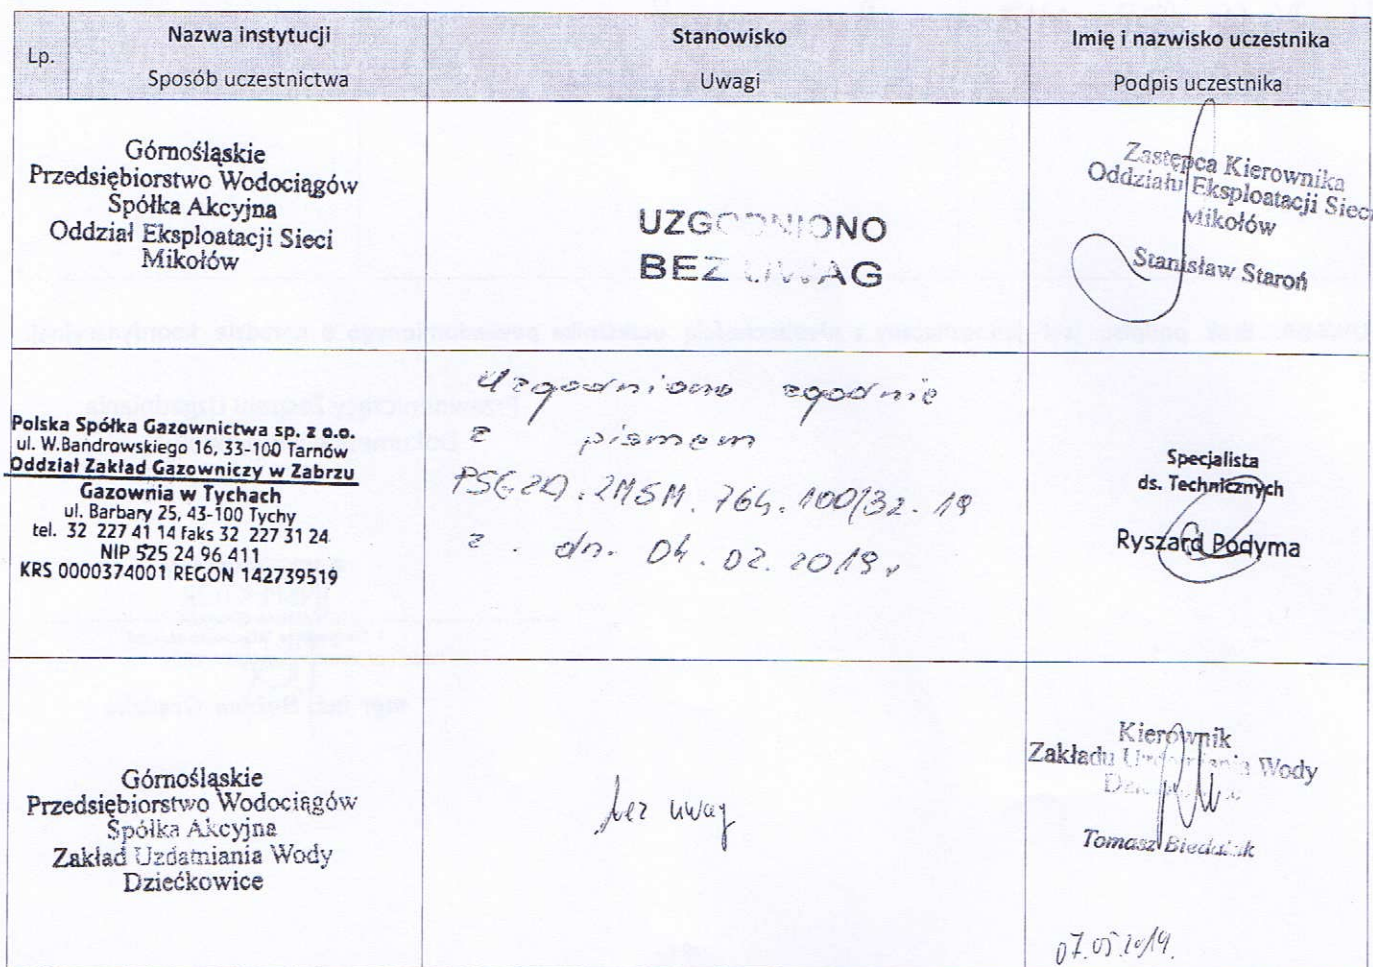 Lp.
Nazwa instytucji
Sposób uczestnictwa
Stanowisko
Uwagi
Imię i nazwisko uczestnika
Podpis uczestnika
Górnośląskie
Przedsiębiorstwo Wodociągów
Spółka Akcyjna
Oddział Eksploatacji Sieci
Mikołów
UZGODNIONO
BEZ UWAG
Zastępca Kierownika
Oddziału Eksploatacji Sieci
Mikołów
Stanisław Staroń
Polska Spółka Gazownictwa sp. z o.o.
ul. W.Bandrowskiego 16, 33-100 Tarnów
Oddział Zakład Gazowniczy w Zabrzu
Gazownia w Tychach
ul. Barbary 25, 43-100 Tychy
tel. 32 227 41 14 faks 32 227 31 24
NIP 525 24 96 411
KRS 0000374001 REGON 142739519
Uzgodniono zgodnie
z pismem
PSGZD.ZMSM.764.100/32.19
z dn. 04.02.2019r
Specjalista
ds. Technicznych
Ryszard Podyma
Górnośląskie
Przedsiębiorstwo Wodociągów
Spółka Akcyjna
Zakład Uzdatniania Wody
Dziećkowice
bez uwag
Kierownik
Zakładu Uzdatniania Wody
Tomasz
07.05.2019.